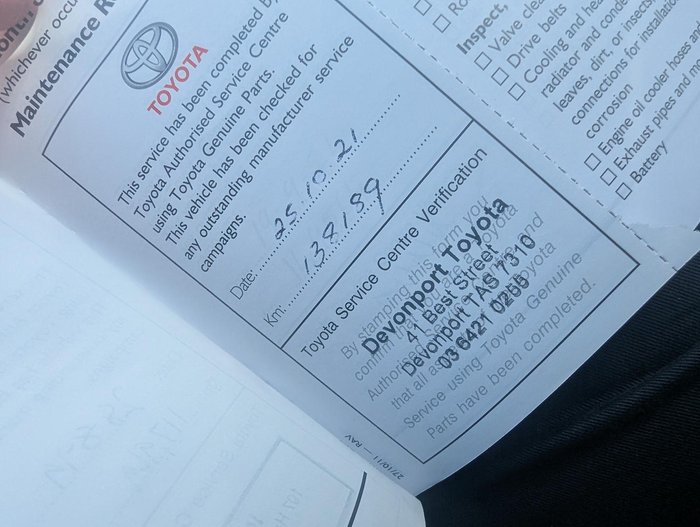 (whichever occu
Maintenance R
TOYOTA
This service has been completed by
Toyota Authorised Service Centre
using Toyota Genuine Parts.
This vehicle has been checked for
any outstanding manufacturer service
campaigns.
Date: 25.10.21
Km: 138189
Toyota Service Centre Verification
By stamping this form you
confirm
Authorised
that all
Service using Toyota Genuine
Parts have been completed.
Devonport Toyota
41 Best Street
Devonport TAS 7310
03 6421 0258
27/10/11 — RAV
Inspect,
Valve clea
Drive belts
Cooling and hea
radiator and conde
leaves, dirt, or insects,
connections for installation
corrosion
Engine oil cooler hoses and
Exhaust pipes and mo
Battery